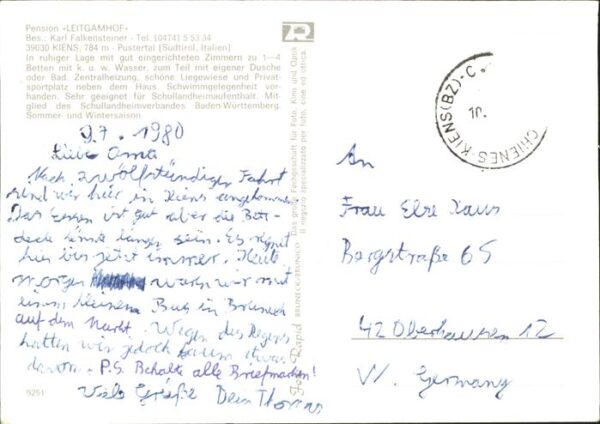 Pension »LEITGAMHOF«
Bes.: Karl Falkensteiner - Tel. (0474) 5 53 34
39030 KIENS, 784 m - Pustertal (Südtirol, Italien)
In ruhiger Lage mit gut eingerichteten Zimmern zu 1—4
Betten mit k. u. w. Wasser, zum Teil mit eigener Dusche
oder Bad. Zentralheizung, schöne Liegewiese und Privat-
sportplatz neben dem Haus. Schwimmgelegenheit vor-
handen. Sehr geeignet für Schullandheimaufenthalt. Mit-
glied des Schullandheimverbandes Baden-Württemberg.
Sommer- und Wintersaison
9.7. 1980
Liebe Oma
Nach zwölfstündiger Fahrt
sind wir hier in Kiens angekommen.
Das Essen ist gut aber die Bett-
decke könnte länger sein. Es regnet
hier bis jetzt immer. Heute
morgen waren wir mit
einem kleinen Bus in Bruneck
auf dem Markt. Wegen des Regens
hatten wir jedoch kaum etwas
davon. P.S. Behalte alle Briefmarken!
Viele Grüße Dein Thomas
9251
Foto Rapid BRUNECK/BRUNICO
Das große Fachgeschäft für Foto, Kino und Optik
Il negozio specializzato per foto, cine ed ottica
R
CHIENES KIENS (BZ) - C.
10.
An
Frau Else Kaus
Bergstraße 65
42 Oberhausen 12
W. Germany